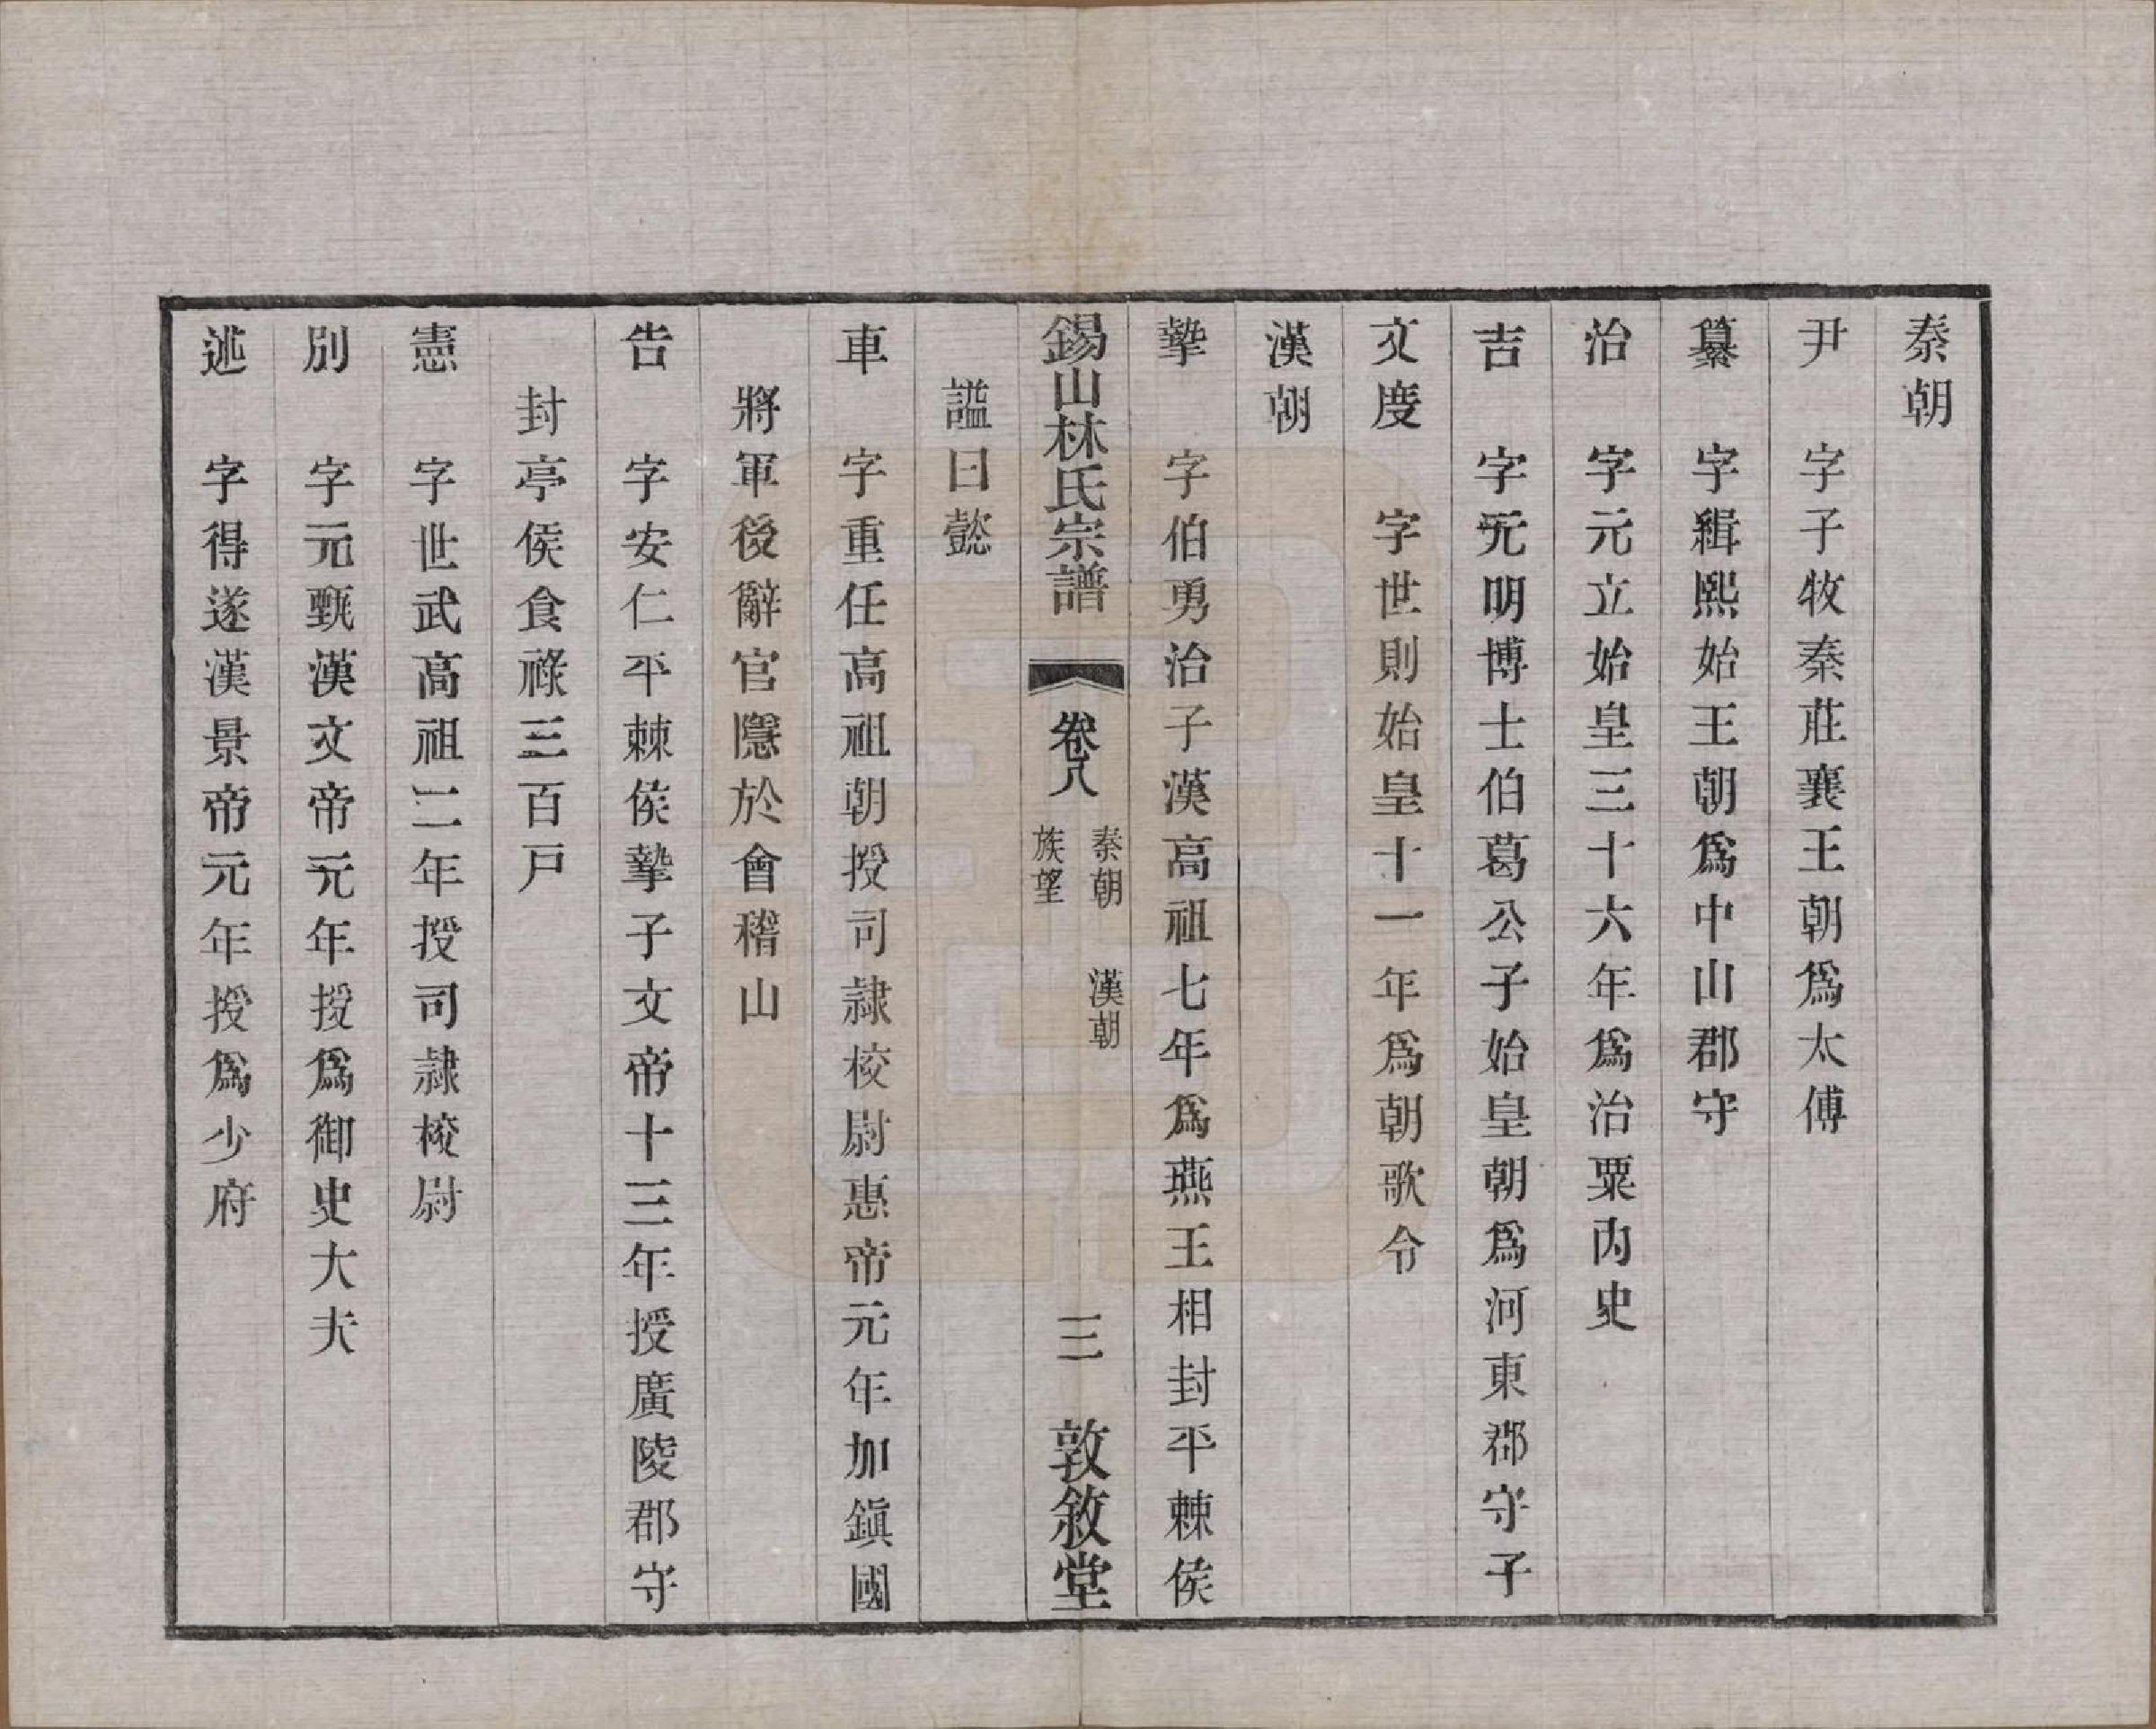 秦朝
尹　字子牧秦莊襄王朝爲太傅
纂　字緝熙始王朝爲中山郡守
治　字元立始皇三十六年爲治粟內史
吉　字元明博士伯葛公子始皇朝爲河東郡守子
文度　字世則始皇十一年爲朝歌令
漢朝
摯　字伯勇治子漢高祖七年爲燕王相封平棘侯
錫山林氏宗譜　卷八　秦朝　漢朝　族望　三　敦敘堂
謚曰懿
車　字重任高祖朝授司隸校尉惠帝元年加鎭國
將軍後辭官隱於會稽山
告　字安仁平棘侯摯子文帝十三年授廣陵郡守
封亭侯食祿三百戸
憲　字世武高祖二年授司隸校尉
別　字元甄漢文帝元年授爲御史大夫
述　字得遂漢景帝元年授爲少府